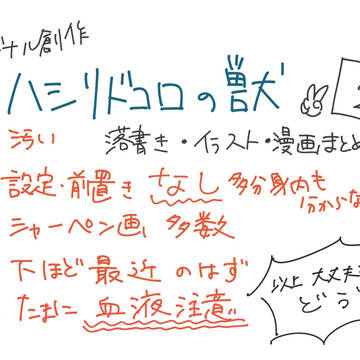 ナル創作
ハシリドコロの獣
汚い 落書き・イラスト・漫画まとめ
設定・前置き なし 多分身内も
分からな
シャーペン画 多数
下ほど 最近 のはず
たまに 血液注意
以上 大丈夫
どう